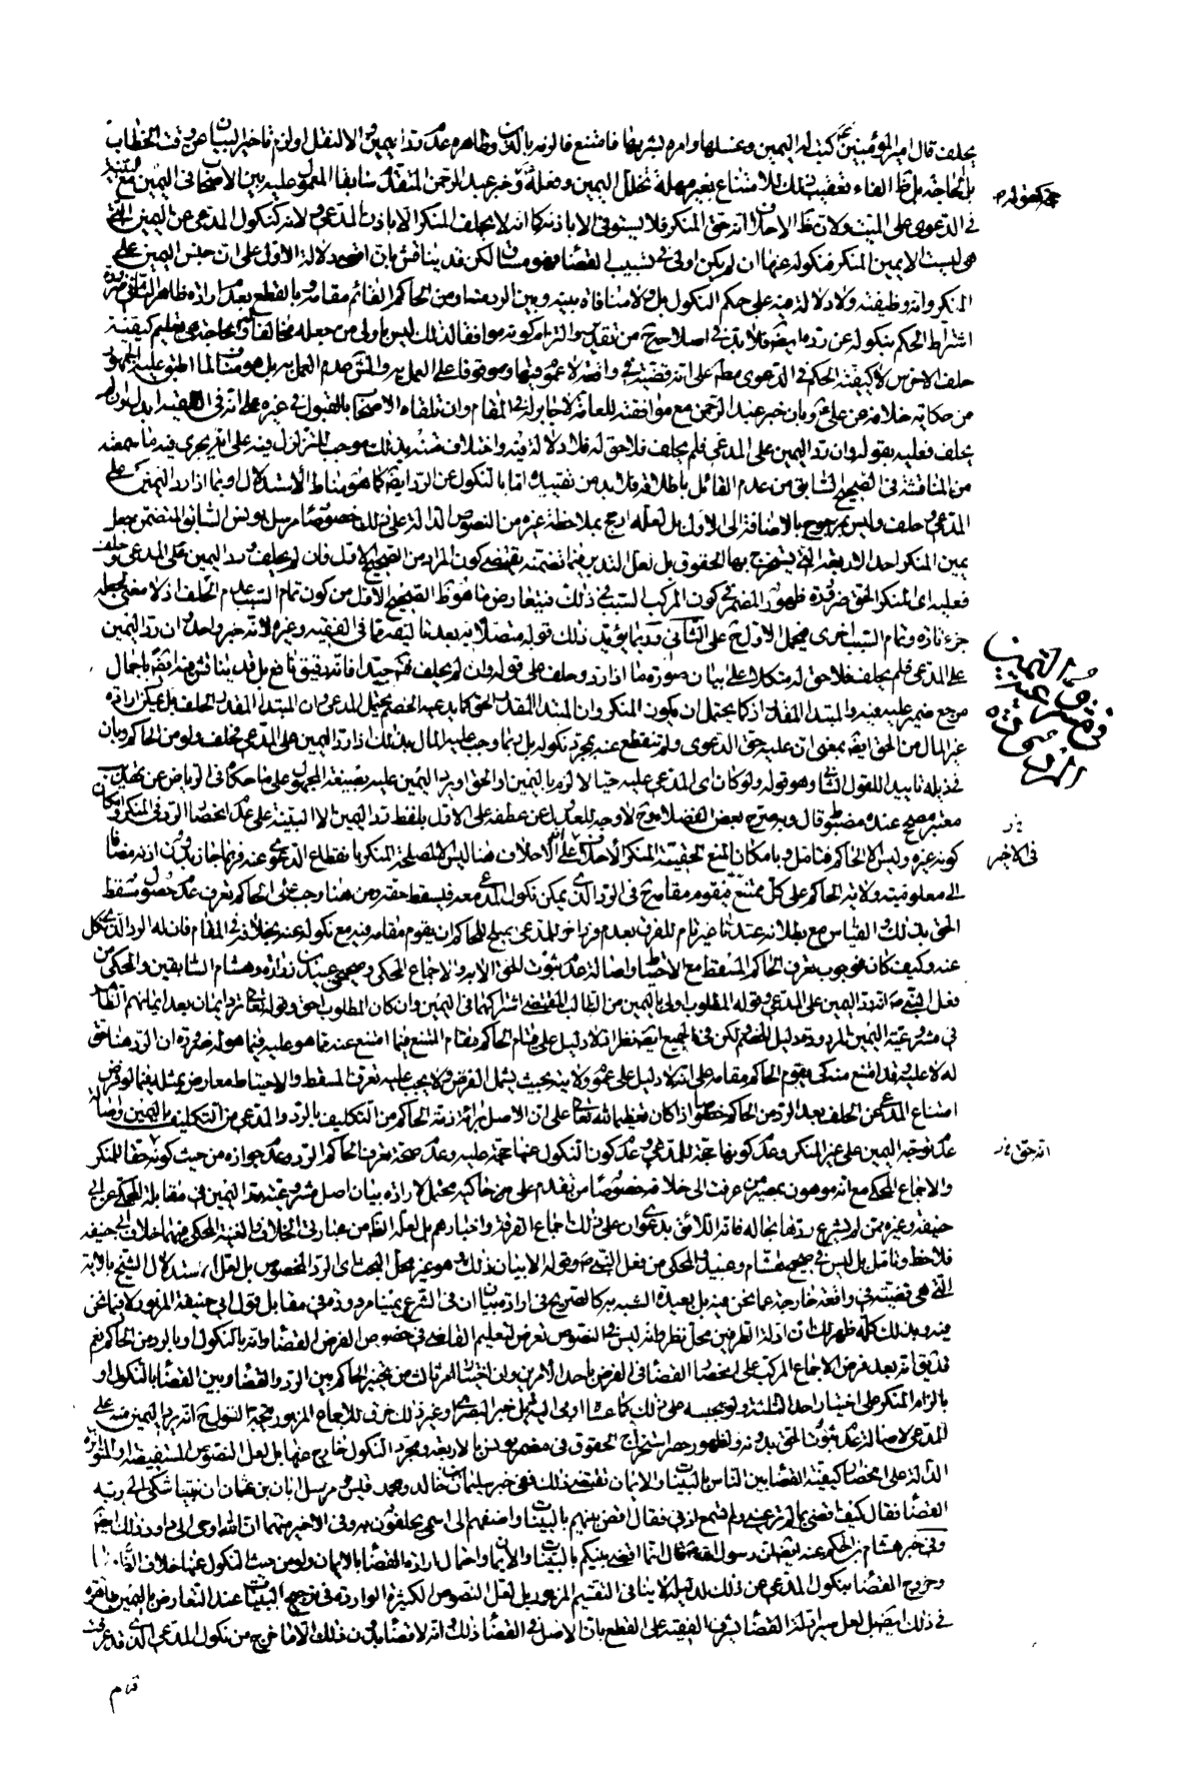 يحلف قال امير المؤمنين كتب له اليمين وغسلها وامره بشربها فامتنع فالزمه بالدين وظاهره عدم رد اليمين والا لنقل او لزم تاخير البيان عن وقت الخطاب
بل الحاجة بل ظ الفاء تعقيب ذلك للامتناع بغير مهلة تخلل اليمين وفعله وخبر عبد الرحمن المتقدم سابقا المعمول عليه بين الاصحاب في اليمين مع البينة
في الدعوى على الميت ولان ظ الاحلاف انه حق المنكر فلا يستوفى الا باذنه كما انه لا يحلف المنكر الا باذن المدعي ولانه كنكول المدعي عن اليمين التي
هي ليست الا يمين المنكر فنكوله عنها ان لم يكن اولى في تسبيب القضاء فهو مساو لكن قد يناقش بان اقصى دلالة الاول على ان جنس اليمين على
المنكر وانه وظيفته ولا دلالة فيه على حكم النكول بل ولا منافاة بينه وبين الرد منه او من الحاكم القائم مقامه وبالقطع بعدم ارادة ظاهر الثاني ضرورة
اشتراط الحكم بنكوله عن رد ما ايضا فلا بد في اصلاحه من تقدير والتزام كونه موافقا لذلك ليس باولى من جعله مخالفا والحاجة في تعليم كيفية
حلف الاخرس لا كيفية الحكم في الدعوى مطلقا على انه قضية في واقعة لا عموم فيها وموقوفا على العمل به والمشهور عدم العمل به بل هو مناف لما اطبق عليه الجمهور
من حكاية خلافه عن علي وبان خبر عبد الرحمن مع موافقته للعامة لا جابر له في المقام وان تلقاه الاصحاب بالقبول في غيره على انه في الفقيه ابدل قوله
يحلف فعليه بقوله وان رد اليمين على المدعي فلم يحلف فلا حق له فلا دلالة فيه واختلاف متنه بذلك موجب للتزلزل فيه على انه يجري فيه ما سمعته
من المناقشة في الصحيح السابق من عدم القائل باطلاقه فلا بد من تقييده اما بالنكول عن الرد ايضا كما هو مناط الاستدلال او بما اذا رد اليمين على
المدعي وحلف وليس بمرجوح بالاضافة الى الاول بل لعله ارجح بملاحظة غيره من النصوص الدالة على ذلك خصوصا مرسل يونس السابق المتضمن جعل
يمين المنكر احد الاربعة التي يستخرج بها الحقوق بل لعل التدبر فيما تضمنه يقتضي كون المراد من الصحيح الاول فان لم يحلف ورد اليمين على المدعي وحلف
فعليه اي المنكر الحق ضرورة ظهور المضمر في كون المركب السبب في ذلك فيتعارض ما هو ظ الصحيح الاول من كون تمام السبب عدم الحلف اذ لا معنى لجعله
جزء تارة وتمام السبب اخرى فيحمل الاول على الثاني وربما يؤيد ذلك قوله متصلا به بعد ما ليضم ما في الفقيه وغيره لانه خبر واحد وان رد اليمين
على المدعي فلم يحلف فلا حق له متكلا على بيان صورة ما اذا رد وحلف على قوله وان لم يحلف فتم جيدا فانه دقيق نافع بل قد يناقش فيه ايضا باجمال
مرجع ضمير عليه فيه والمبتدا المقدر اذ كما يحتمل ان يكون المنكر وان المبتدا المقدر الحق كما يدعيه الخصم يحتمل المدعي وان المبتدا المقدر الحلف بل يمكن ارادة
غير المال من الحق ايضا بمعنى ان عليه حق الدعوى ولم تنقطع عنه بمجرد نكوله بل ربما وجب عليه المال بذلك اذا رد اليمين على المدعي فحلف ولو من الحاكم وبان
في ذيله تاييدا للقول الثاني وهو قوله ولو كان اي المدعى عليه حيا لالزم باليمين او الحق او يرد اليمين عليه بصيغة المجهول على ما حكاه في الرياض عن
معتبر مصحح عنده مضبوط قال وبه صرح بعض الفضلاء وح لا وجه للعدول عن عطفه على الاول بلفظ رد اليمين الا التنبيه على عدم انحصار الرد في المنكر وامكان
كونه غيره وليس الا الحاكم فتامل وبامكان المنع لحقيقية المنكر الاحلاف هنا ليس الا لمصلحة المنكر بانقطاع الدعوى عنه فربما جاز بدون اذنه مضافا
الى معلومية ولاية الحاكم على كل ممتنع فيقوم مقامه ح في الرد الذي يمكن نكول المدعي معه فيسقط حقه ومن هنا وجب على الحاكم تعرف عدم حصول مسقط
الحق بذلك والقياس مع بطلانه عندنا غير تام للفرق بعدم فرد اخر للمدعي يصلح للحاكم ان يقوم مقامه فيه مع نكوله عنه بخلافه في المقام فان له الرد الذي نكل
عنه وكيف كان فوجوب تعرف الحاكم المسقط مع الاحتياط واصالة عدم ثبوت الحق الا به والاجماع المحكي وصحيحي عبيد بن زرارة وهشام السابقين والمحكي من
فعل النبي ص انه رد اليمين على المدعي وقوله المطلوب اولى باليمين من الطالب المقتضي اشتراكهما في اليمين وان كان المطلوب احق وقوله تعالى او ترد ايمان بعد ايمانهم الظاهر
في مشروعية اليمين المردودة دليل الخصم لكن في الجميع ايضا نظر اذ لا دليل على قيام الحاكم مقام الممتنع فيما امتنع عنه مما هو عليه فيما هو له ضرورة ان الرد هنا حق
له لا عليه وقد امتنع منه كي يقوم الحاكم مقامه على انه لا دليل على عموم ولايته بحيث يشمل الفرض ولا يجب عليه تعرف المسقط والاحتياط معارض بمثله فيما لو فرض
امتناع المدعي عن الحلف بعد الرد من الحاكم خصوصا اذا كان تعظيما لله تعالى على ان الاصل براءة ذمة الحاكم من التكليف بالرد والمدعي من التكليف باليمين واصالة
عدم توجه اليمين على غير المنكر وعدم كونها حجة للمدعي وعدم كون النكول عنها حجة عليه وعدم صحة تعرف الحاكم الرد وعدم جوازه من حيث كونه حقا للمنكر
والاجماع المحكي مع انه موهون بمصير من عرفت الى خلافه خصوصا من تقدم على من حاكيه محتمل لارادة بيان اصل مشروعية رد اليمين في مقابلة المحكي عن ابي
حنيفة وغيره ممن لم يشرع ردها بحاله فانه اللائق بدعوى ان على ذلك اجماع الفرقة واخبارهم بل لعله الظاهر من عبارتي الخلاف والغنية المحكي فيهما خلاف ابي حنيفة
فلاحظ وتامل بل ليس في صحيح هشام وعبيد والمحكي من فعل النبي ص وقوله الا بيان ذلك وهو غير محل البحث اي الرد المخصوص بل لعل استدلال الشيخ بالاية
التي هي قضية في واقعة خارجة عما نحن فيه بل بعيدة الشبه به كالصريح في ارادة بيان ان في الشرع يمينا مردودة في مقابل قول ابي حنيفة المزبور لا فيما نحن
فيه وبذلك كله ظهر لك ان ادلة الطرفين محل نظر وانه ليس في النصوص تعرض لتعليم القاضي في خصوص الفرض القضاء وانه بالنكول او بالرد من الحاكم نعم
قد يق انه بعد فرض الاجماع المركب على انحصار القضاء في الفرض باحد الامرين ولن اخبث اليه ثالث من تخيير الحاكم بين الرد والقضاء وبين القضاء بالنكول او
بالزام المنكر على اختيار احد الثلثة ولو بحبسه على ذلك كما عساه اومى اليه ذيل خبر البصري وغير ذلك خرق للاجماع المزبور متجه القول ح انه يرد اليمين منه على
المدعي لاصالة عدم ثبوت الحق بدونه ولظهور حصر استخراج الحقوق في مضمر يونس بالاربعة ومجرد النكول خارج عنها بل لعل النصوص المستفيضة او المتواترة
الدالة على انحصار كيفية القضاء بين الناس بالبينات والايمان تقتضي ذلك ففي خبر سليمان بن خالد ومحمد بن قيس ومرسل ابان بن عثمان ان نبيا شكى الى ربه
القضاء فقال كيف اقضي بما لم تر عيني ولم تسمع اذني فقال اقض بينهم بالبينات واضفهم الى اسمي يحلفون به وفي الاخير منهما ان الله اوحى الى داود ذلك ايضا
وفي خبر هشام بن الحكم عنه ايضا ان رسول الله ص قال انما اقضي بينكم بالبينات والايمان واحتمال ارادة القضاء بالايمان ولو من حيث النكول عنها خلاف الظاهر
وخروج القضاء بنكول المدعي عن ذلك لدليله لا ينافي التقسيم المزبور بل لعل النصوص الكثيرة الواردة في ترجيح البينات عند التعارض باليمين ظاهرة
في ذلك ايضا بل لعل سبر ادلة القضاء يشرف الفقيه على القطع بان الاصل في القضاء ذلك وانه لا قضاء بدون ذلك الا ما خرج من نكول المدعي الذي قد عرفت
في مشروعية اليمين المردودة
في الاخير
انه حق